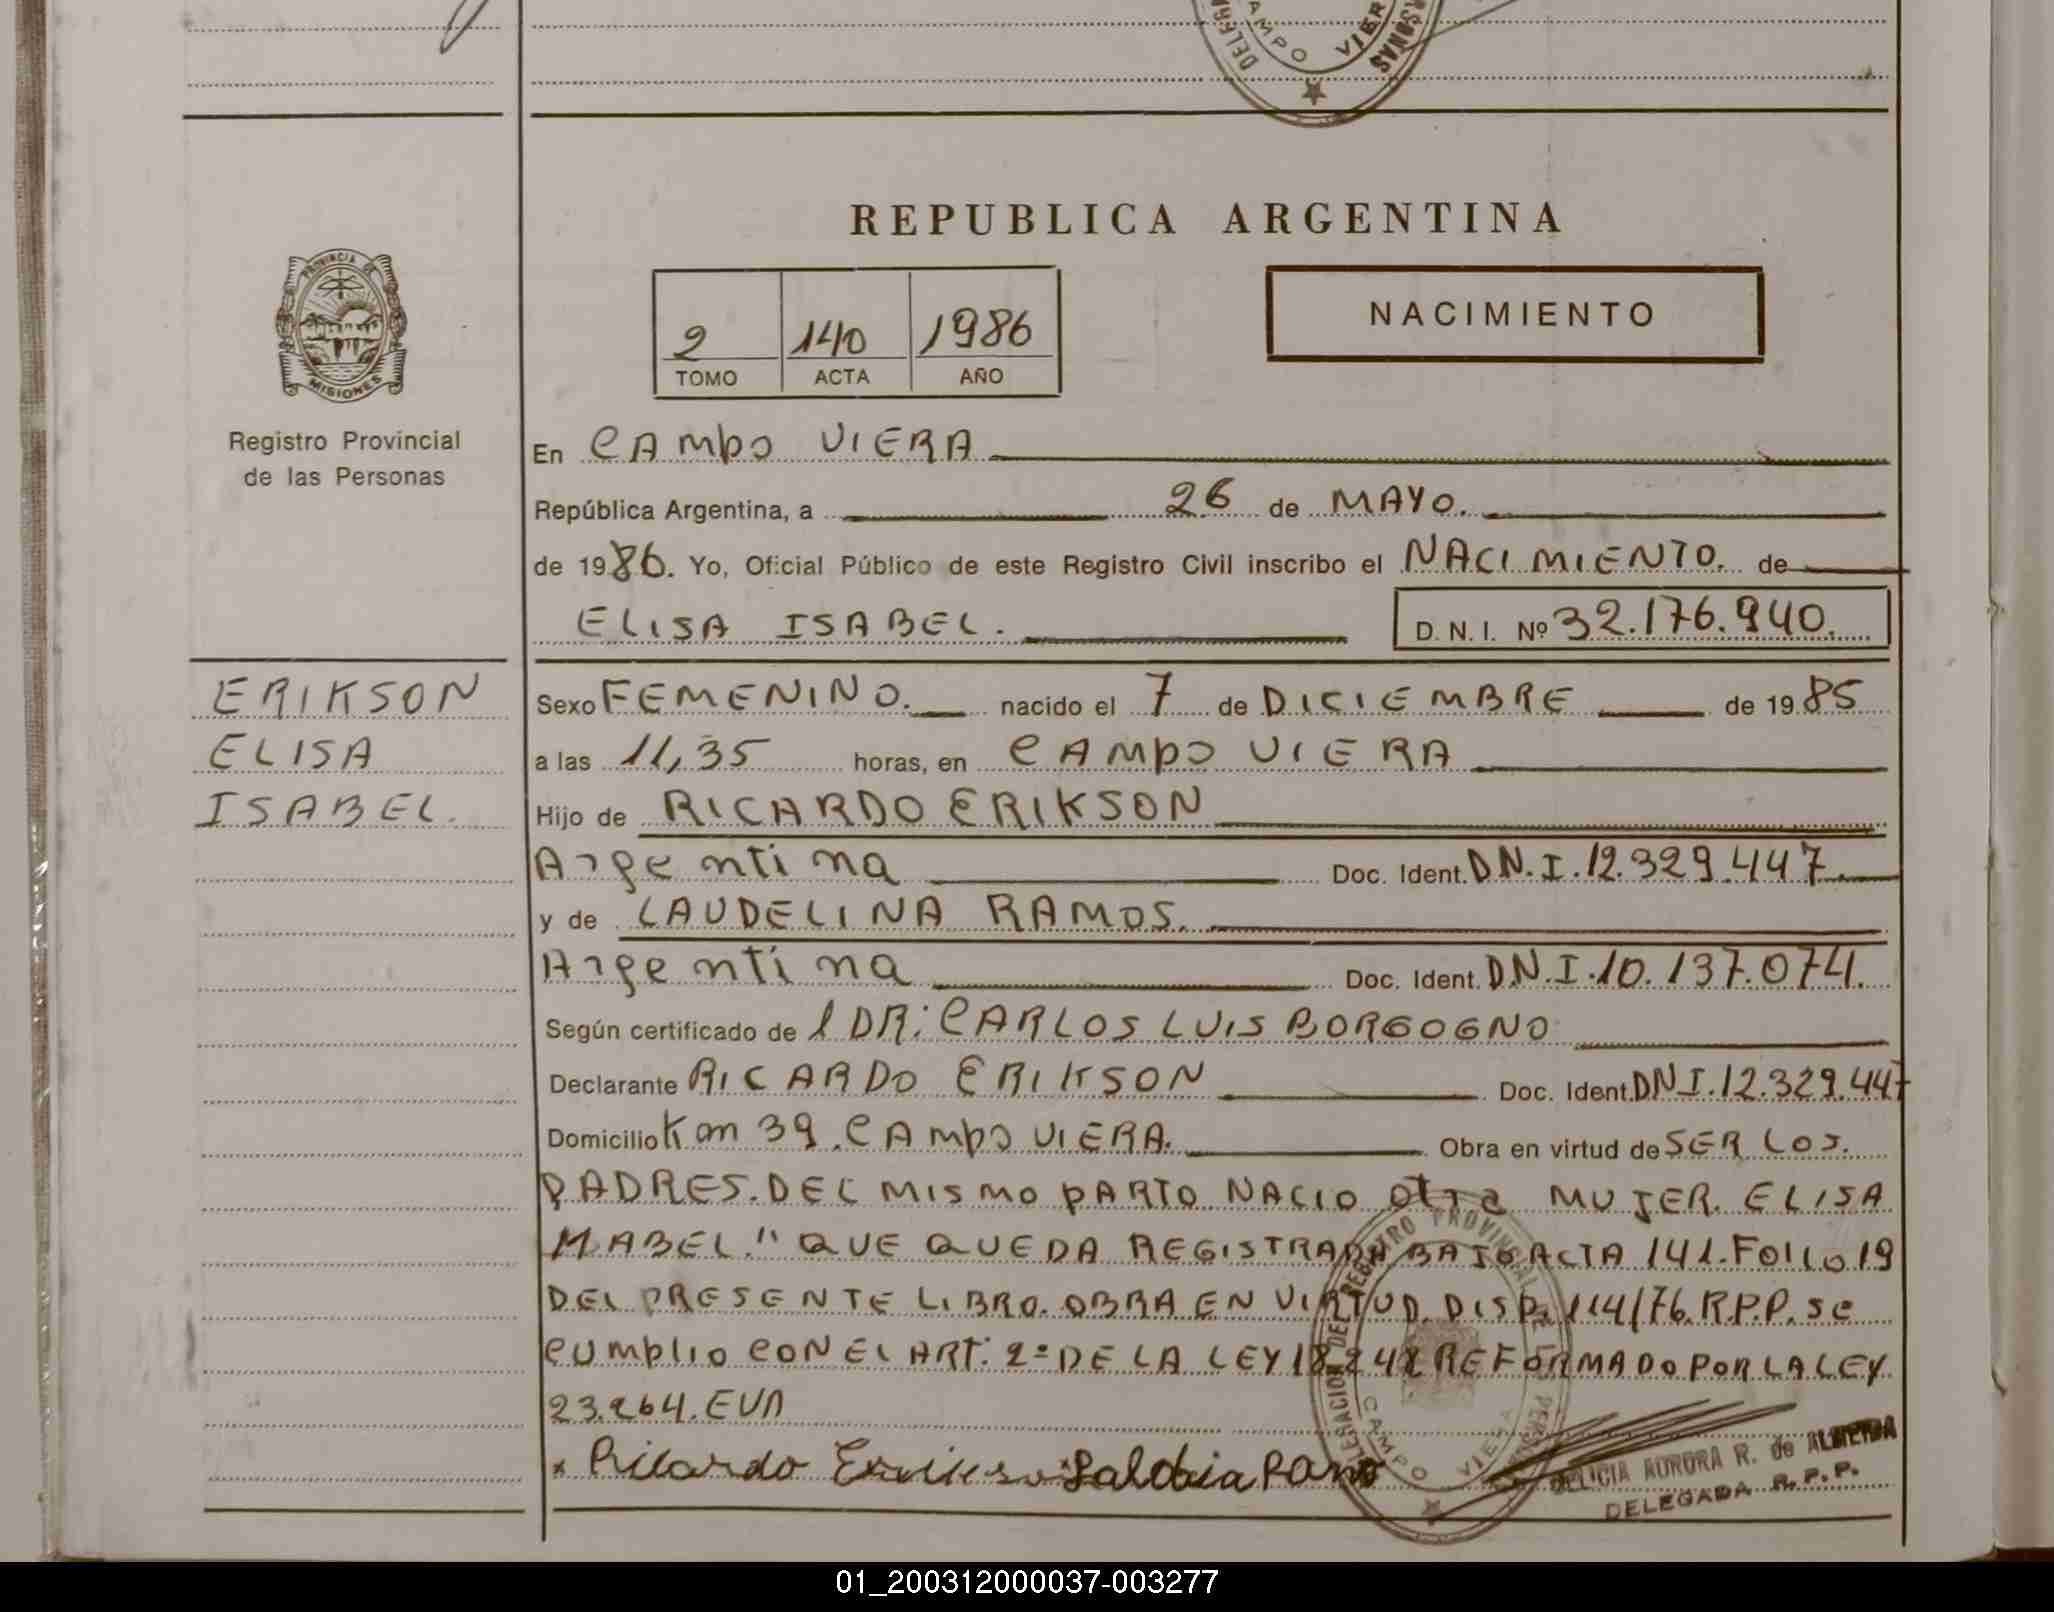 DELE
CAMPO VIER
RSONAS
REPUBLICA ARGENTINA
PROVINCIA DE
MISIONES
2 140 1986
TOMO ACTA AÑO
NACIMIENTO
Registro Provincial
de las Personas
En CAMPO VIERA
República Argentina, a 26 de MAYO.
de 1986. Yo, Oficial Público de este Registro Civil inscribo el NACIMIENTO. de
ELISA ISABEL. D. N. I. Nº 32.176.940.
ERIKSON
ELISA
ISABEL.
Sexo FEMENINO. nacido el 7 de DICIEMBRE de 1985
a las 11,35 horas, en CAMPO VIERA
Hijo de RICARDO ERIKSON
Argentina Doc. Ident. D.N.I. 12.329.447
y de LAUDELINA RAMOS.
Argentina Doc. Ident. D.N.I. 10.137.074.
Según certificado de l DR: CARLOS LUIS BORGOGNO
Declarante RICARDO ERIKSON Doc. Ident. DNI. 12.329.447
Domicilio Km 39. CAMPO VIERA. Obra en virtud de SER LOS.
PADRES. DEL MISMO PARTO NACIO otra MUJER. ELISA
MABEL." QUE QUEDA REGISTRADA BAJO ACTA 141. FOLIO 19
DEL PRESENTE LIBRO. OBRA EN VIRTUD. DISP. 114/76. R.P.P. se
CUMPLIO CON EL ART. 2º DE LA LEY 18.248 REFORMADO POR LA LEY
23.264.
x Ricardo
DELEGACION DEL REGISTRO PROVINCIAL DE
CAMPO VIERA
DELICIA AURORA R. de ALMEIDA
DELEGADA R. P. P.
01_200312000037-003277